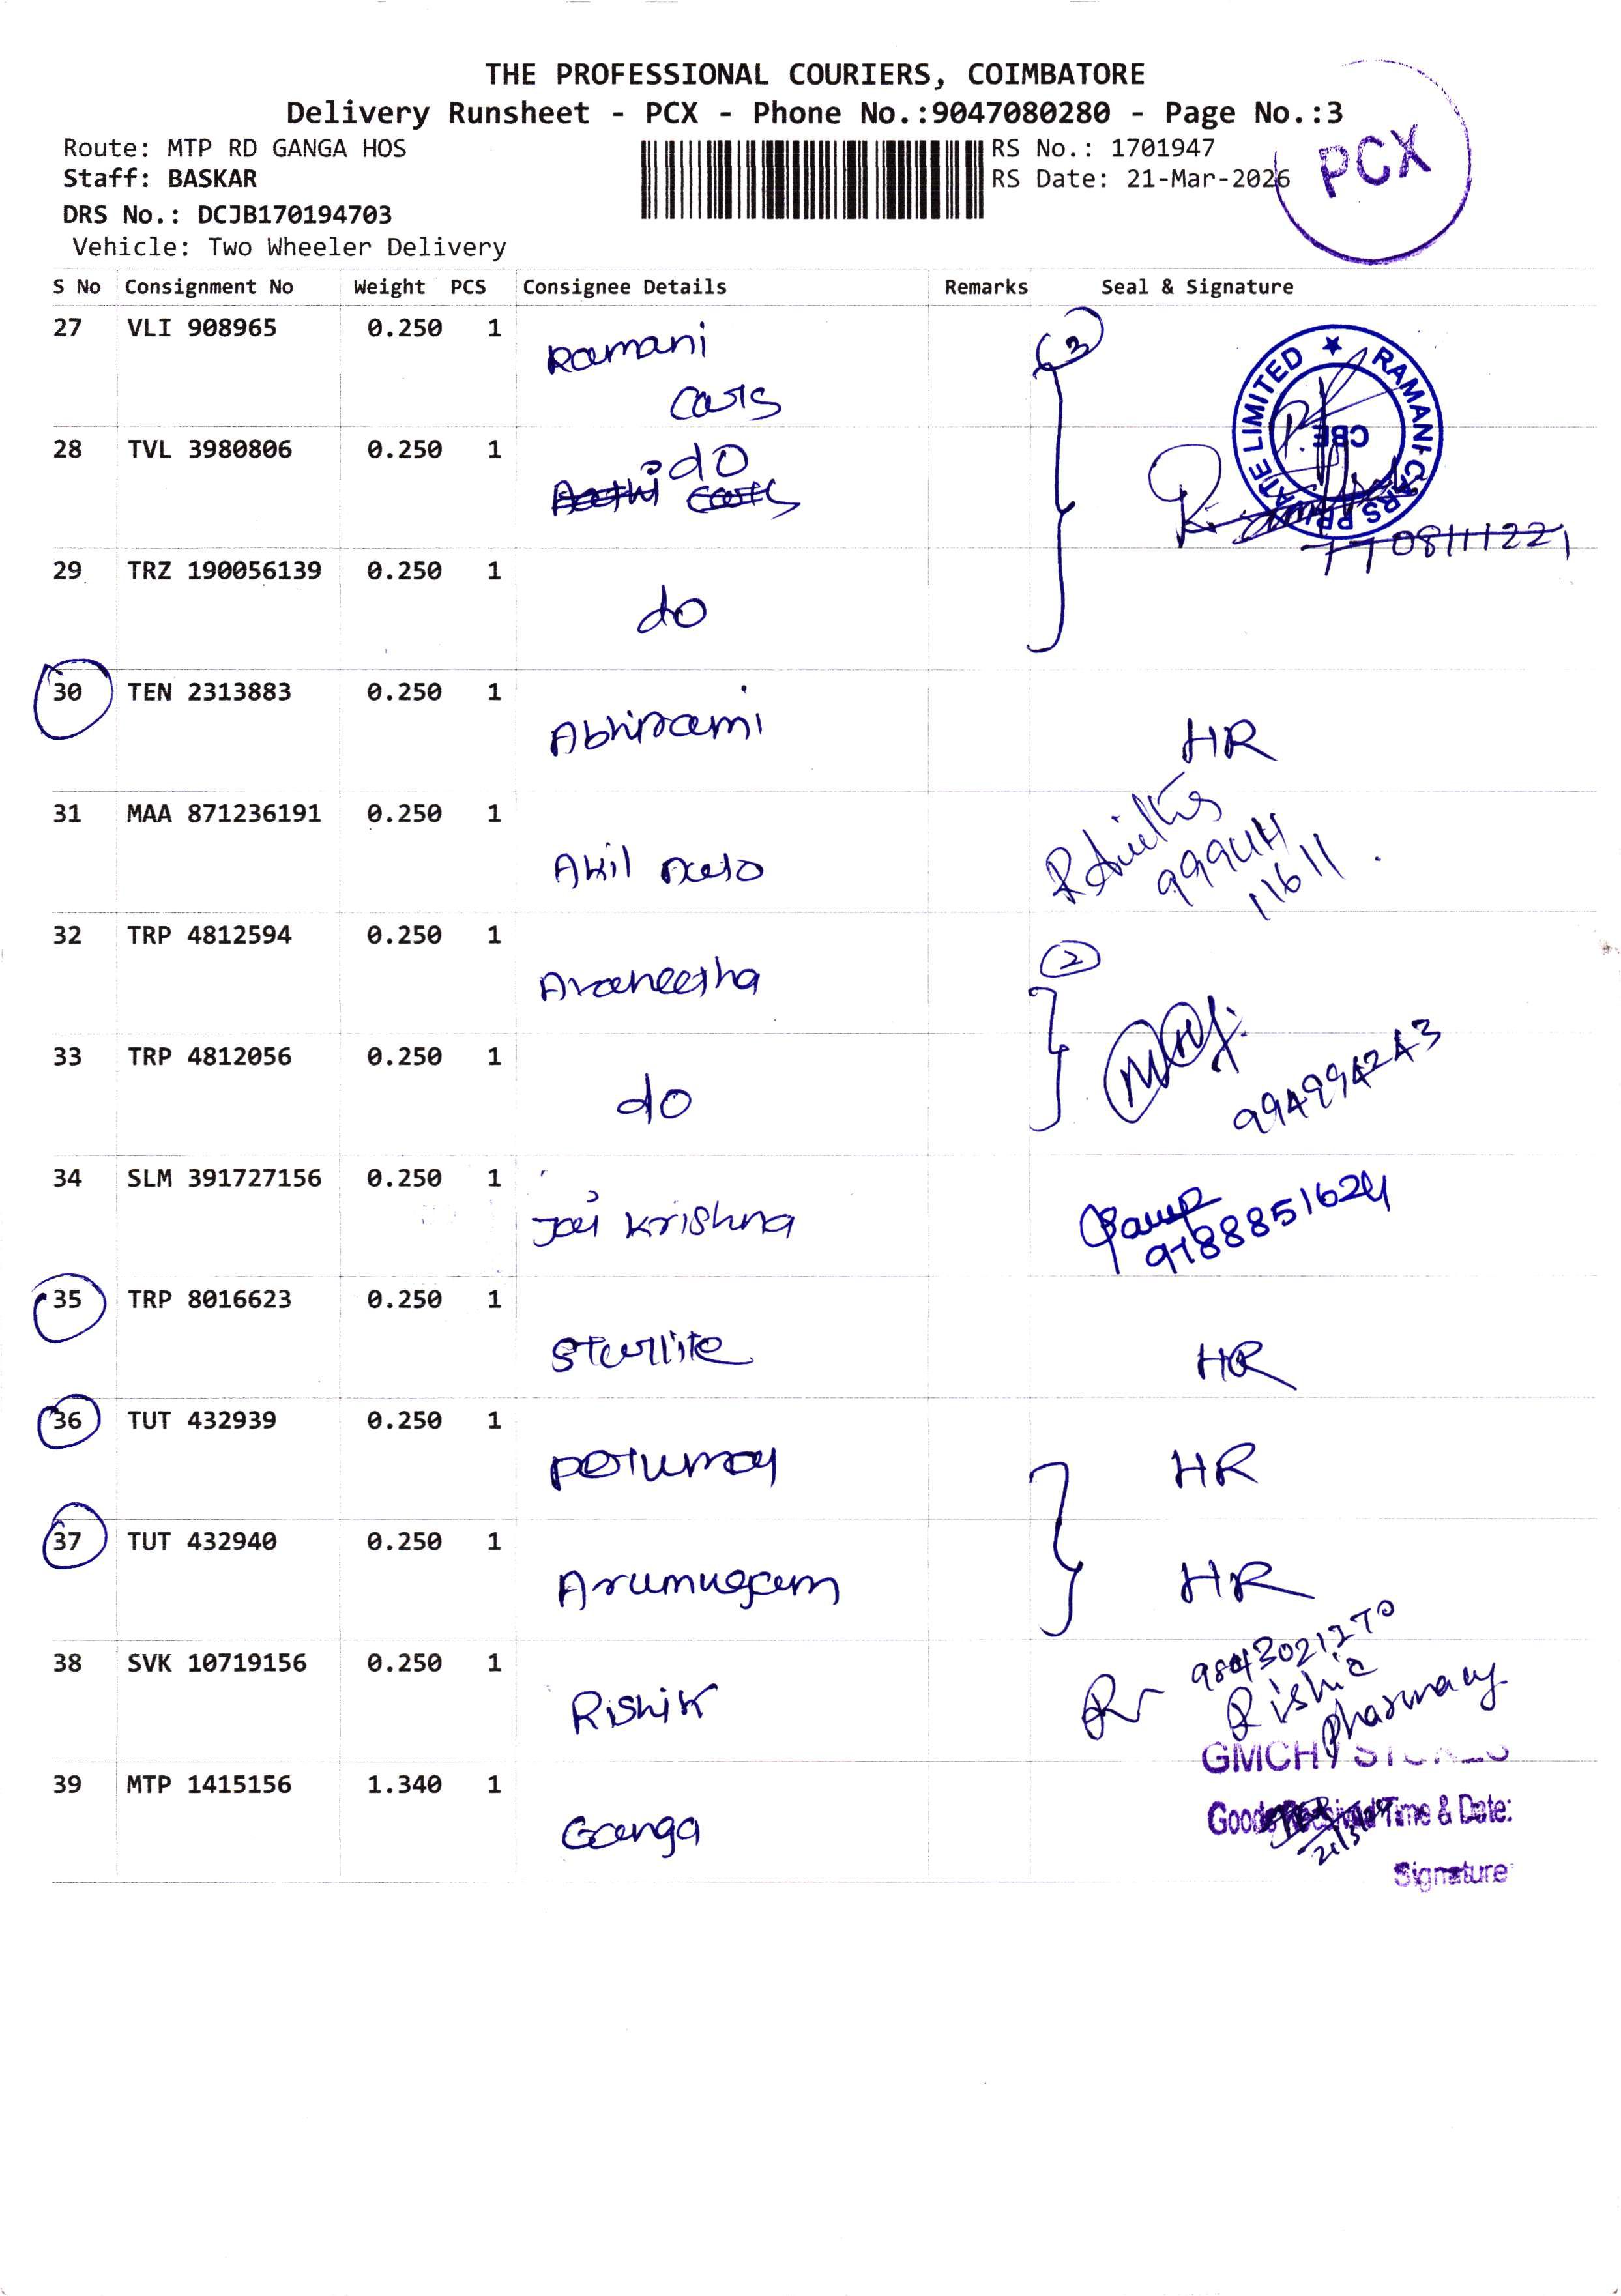 THE PROFESSIONAL COURIERS, COIMBATORE
Delivery Runsheet - PCX - Phone No.:9047080280 - Page No.:3
Route: MTP RD GANGA HOS
RS No.: 1701947
Staff: BASKAR
RS Date: 21-Mar-2026
PCX
DRS No.: DCJB170194703
Vehicle: Two Wheeler Delivery
S No Consignment No Weight PCS Consignee Details Remarks Seal & Signature
27 VLI 908965 0.250 1 Ramani
Cars
3
RAMANI CARS PRIVATE LIMITED
CBE
28 TVL 3980806 0.250 1 do
7708111221
29 TRZ 190056139 0.250 1 do
30 TEN 2313883 0.250 1 Abhirami HR
31 MAA 871236191 0.250 1 Akil
99944
11611
32 TRP 4812594 0.250 1 Avaneetha
2
33 TRP 4812056 0.250 1 do
9949994243
34 SLM 391727156 0.250 1 Jai Krishna
9788851624
35 TRP 8016623 0.250 1 Sterlite HR
36 TUT 432939 0.250 1 HR
37 TUT 432940 0.250 1 Arumugam HR
38 SVK 10719156 0.250 1 Rishik
9843021270
Rishic
Pharmacy
GMCH STORES
39 MTP 1415156 1.340 1 Ganga
Goods Received Time & Date:
Signature